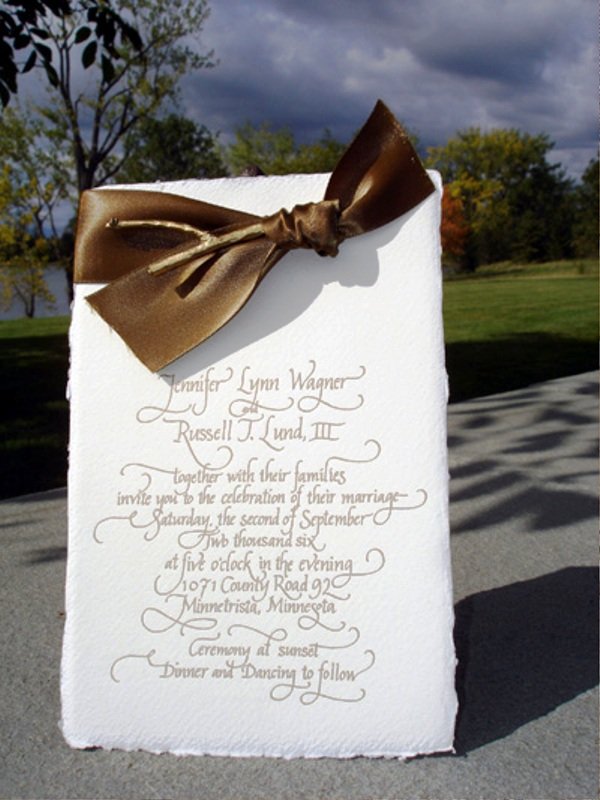 Jennifer Lynn Wagner
and
Russell T. Lund, III
together with their families
invite you to the celebration of their marriage
Saturday, the second of September
Two thousand six
at five o'clock in the evening
1071 County Road 92
Minnetrista, Minnesota
Ceremony at sunset
Dinner and Dancing to follow